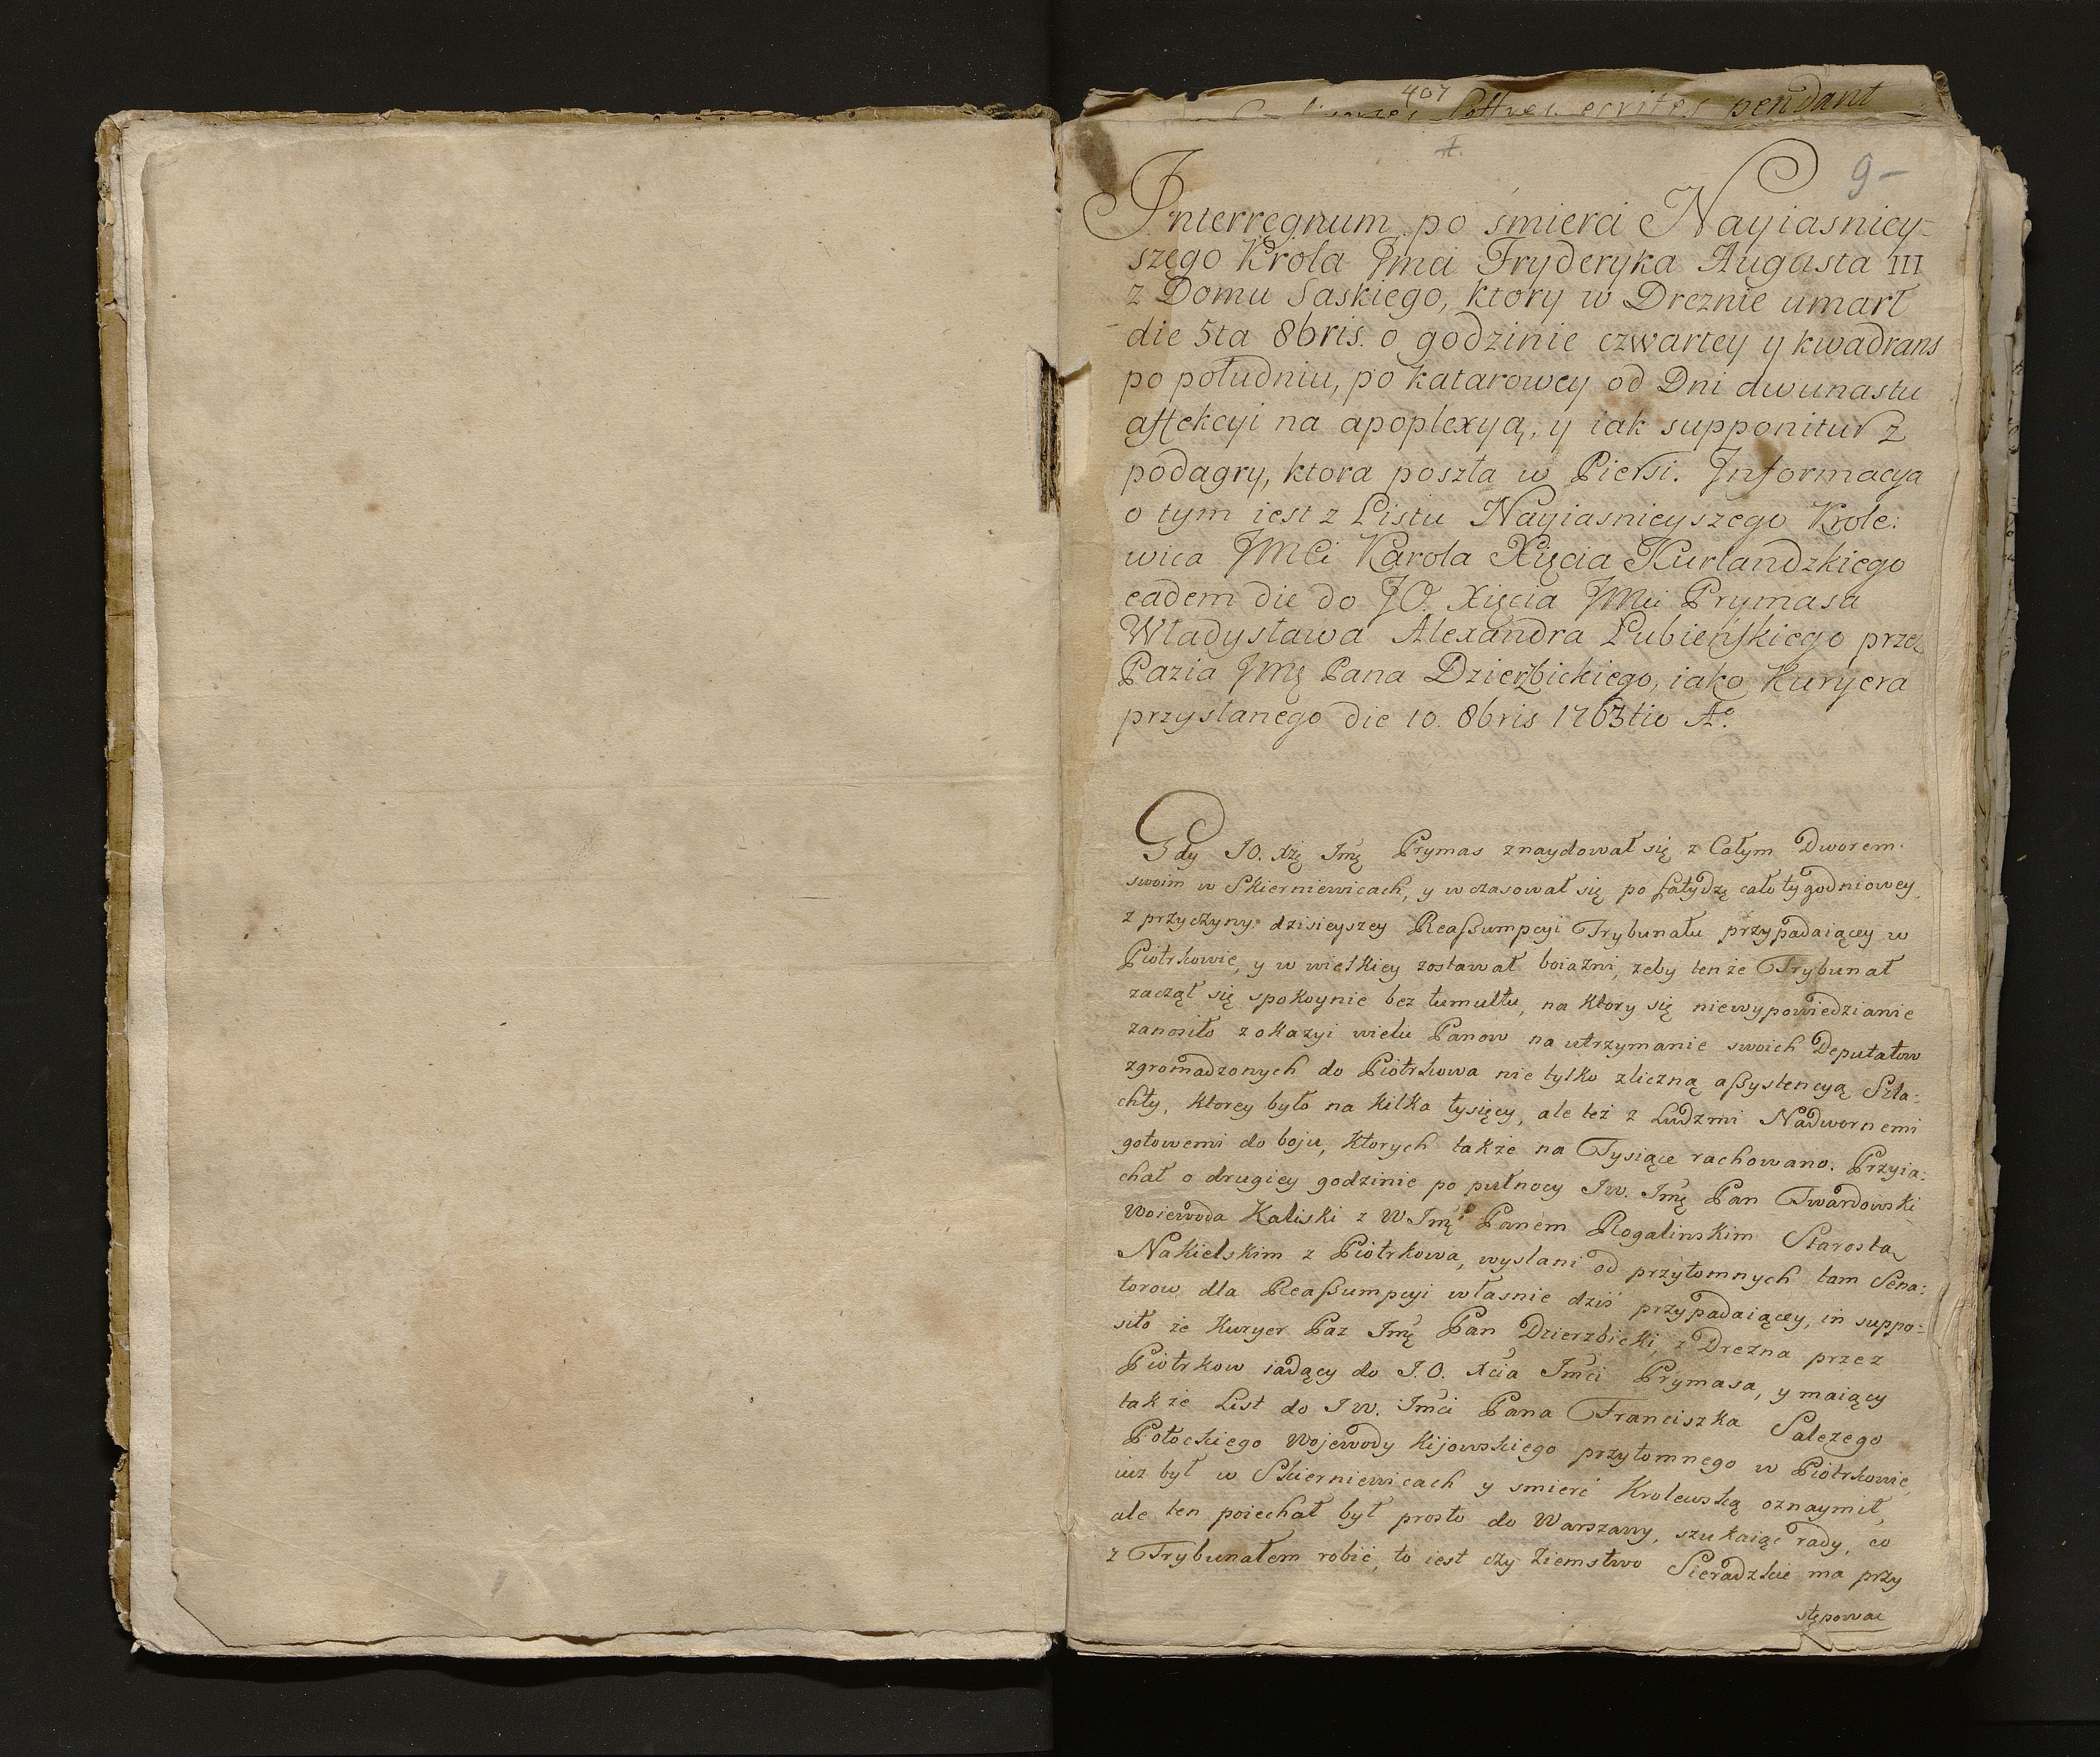 407
Lettres ecrites pendant
A.
9-
Interregnum po śmierci Nayiasniey-
szego Krola Jmci Fryderyka Augusta III
z Domu Saskiego, ktory w Dreznie umarł
die 5ta 8bris. o godzinie czwartey y kwadrans
po południu, po katarowey od Dni dwunastu
affekcyi na apoplexyą, y iak supponitur z
podagry, ktora poszła w Piersi. Informacya
o tym iest z Listu Nayiasnieyszego Krole:
wica JMCi Karola Xięcia Kurlandzkiego
eadem die do JO. Xięcia JMci Prymasa
Władysława Alexandra Łubieńskiego przez
Pazia JMę Pana Dzierżbickiego, iako Kuryera
przysłanego die 10. 8bris 1763tio Aº.
Gdy JO. Xżę Jmę Prymas znaydował się z Całym Dworem
swoim w Skierniewicach, y wczasował się po fatydzę cało tygodniowey
z przyczyny dzisieyszey Reaßumpcyi Trybunału przypadaiącey w
Piotrkowie, y w wielkiey zostawał boiaźni, zeby tenże Trybunał
zaczął się spokoynie bez tumultu, na ktory się niewypowiedzianie
zanosiło z okazyi wielu Panow na utrzymanie swoich Deputatow
zgromadzonych do Piotrkowa nie tylko zliczną aßystencyą Szla:
chty, ktorey było na kilka tysięcy, ale też z Ludzmi Nadwornemi
gotowemi do boju, ktorych także na Tysiące rachowano. Przyia:
chał o drugiey godzinie po pułnocy JW. Jmę Pan Twardowski
Wojewoda Kaliski z WJmę Panem Rogalinskim Starostą
Nakielskim z Piotrkowa, wysłani od przytomnych tam Sena:
torow dla Reaßumpcyi własnie dziś przypadaiącey, in suppo:
sito że Kuryer Paz Jmę Pan Dzierzbicki z Drezna przez
Piotrkow iadący do J.O. Xcia Jmci Prymasa, y maiący
także List do JW. Jmci Pana Franciszka Salezego
Potockiego Wojewody Kijowskiego przytomnego w Piotrkowie,
iuz był w Skierniewicach y smierć Krolewską oznaymił,
ale ten poiechał był prosto do Warszawy, szukaiąc rady, co
z Trybunałem robić, to iest czy Ziemstwo Sieradzkie ma przy
stępować